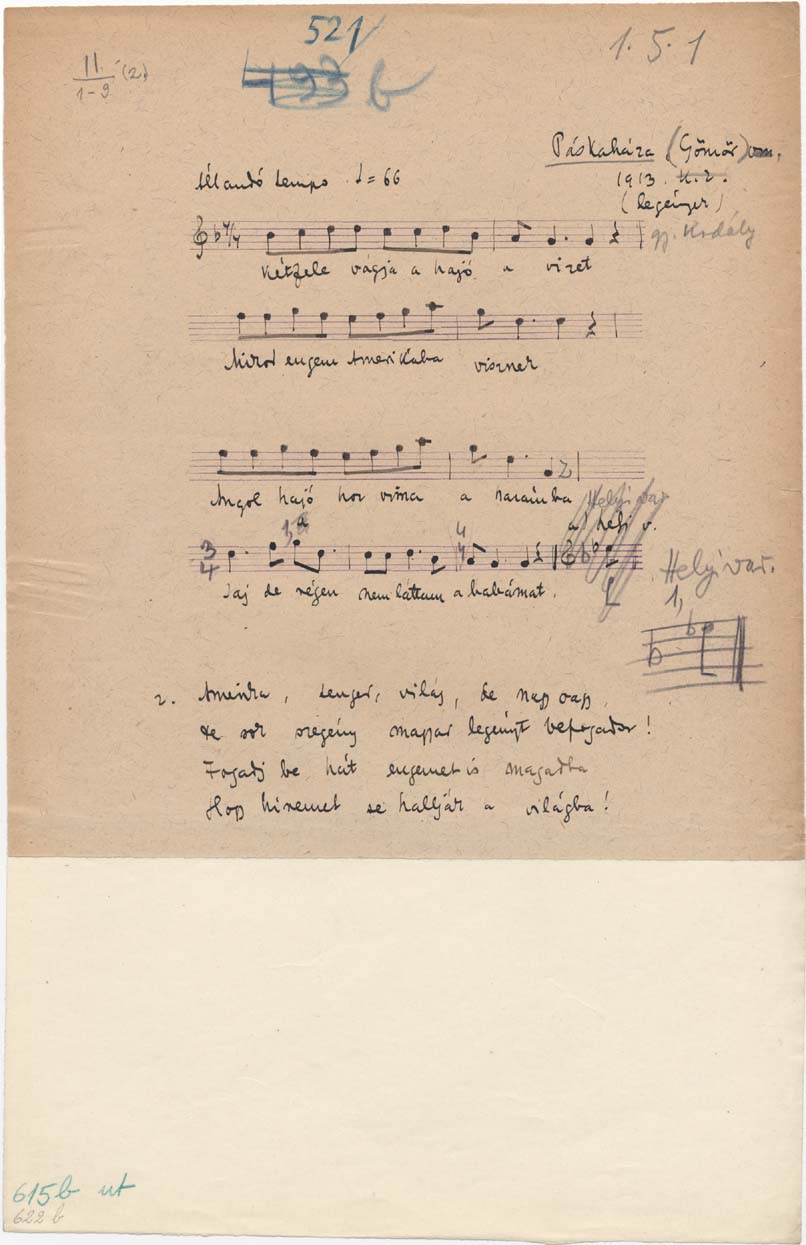 521
1.5.1
II. (2.)
1-9
493 b
Páskaháza (Gömör) vm.
Állandó tempo ♩= 66
1913. K.Z.
(legényer)
gy. Kodály
4/4
Kétfele vágja a hajó a vizet
Mikor engem Amerikába visznek
Angol hajó
a
Helyi var
a helyi v.
3
4
1,
a
4
4
Jaj de régen nem láttam a babámat.
Helyi var.
1,
2. Amerika, tenger, világ, de nagy vagy,
De sok szegény magyar legényt befogadsz!
Fogadj be hát engemet is magadba
Hogy hiremet se hallják a világba!
615b ut
622 b